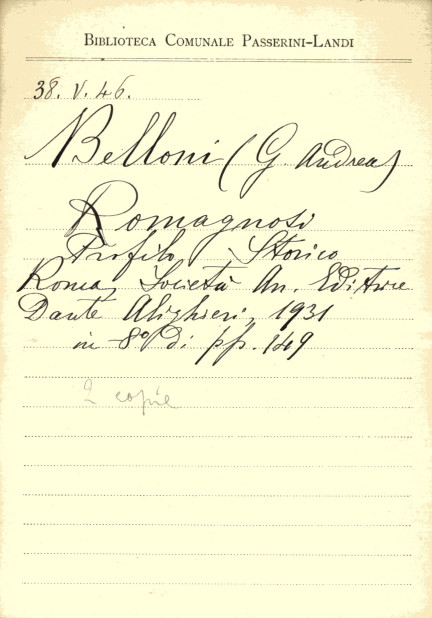 BIBLIOTECA COMUNALE PASSERINI-LANDI
38. V. 46.
Belloni (G. Andrea)
Romagnosi
Profilo Storico
Roma, Società An. Editrice
Dante Alighieri, 1931
in 8° di pp. 149
2 copie